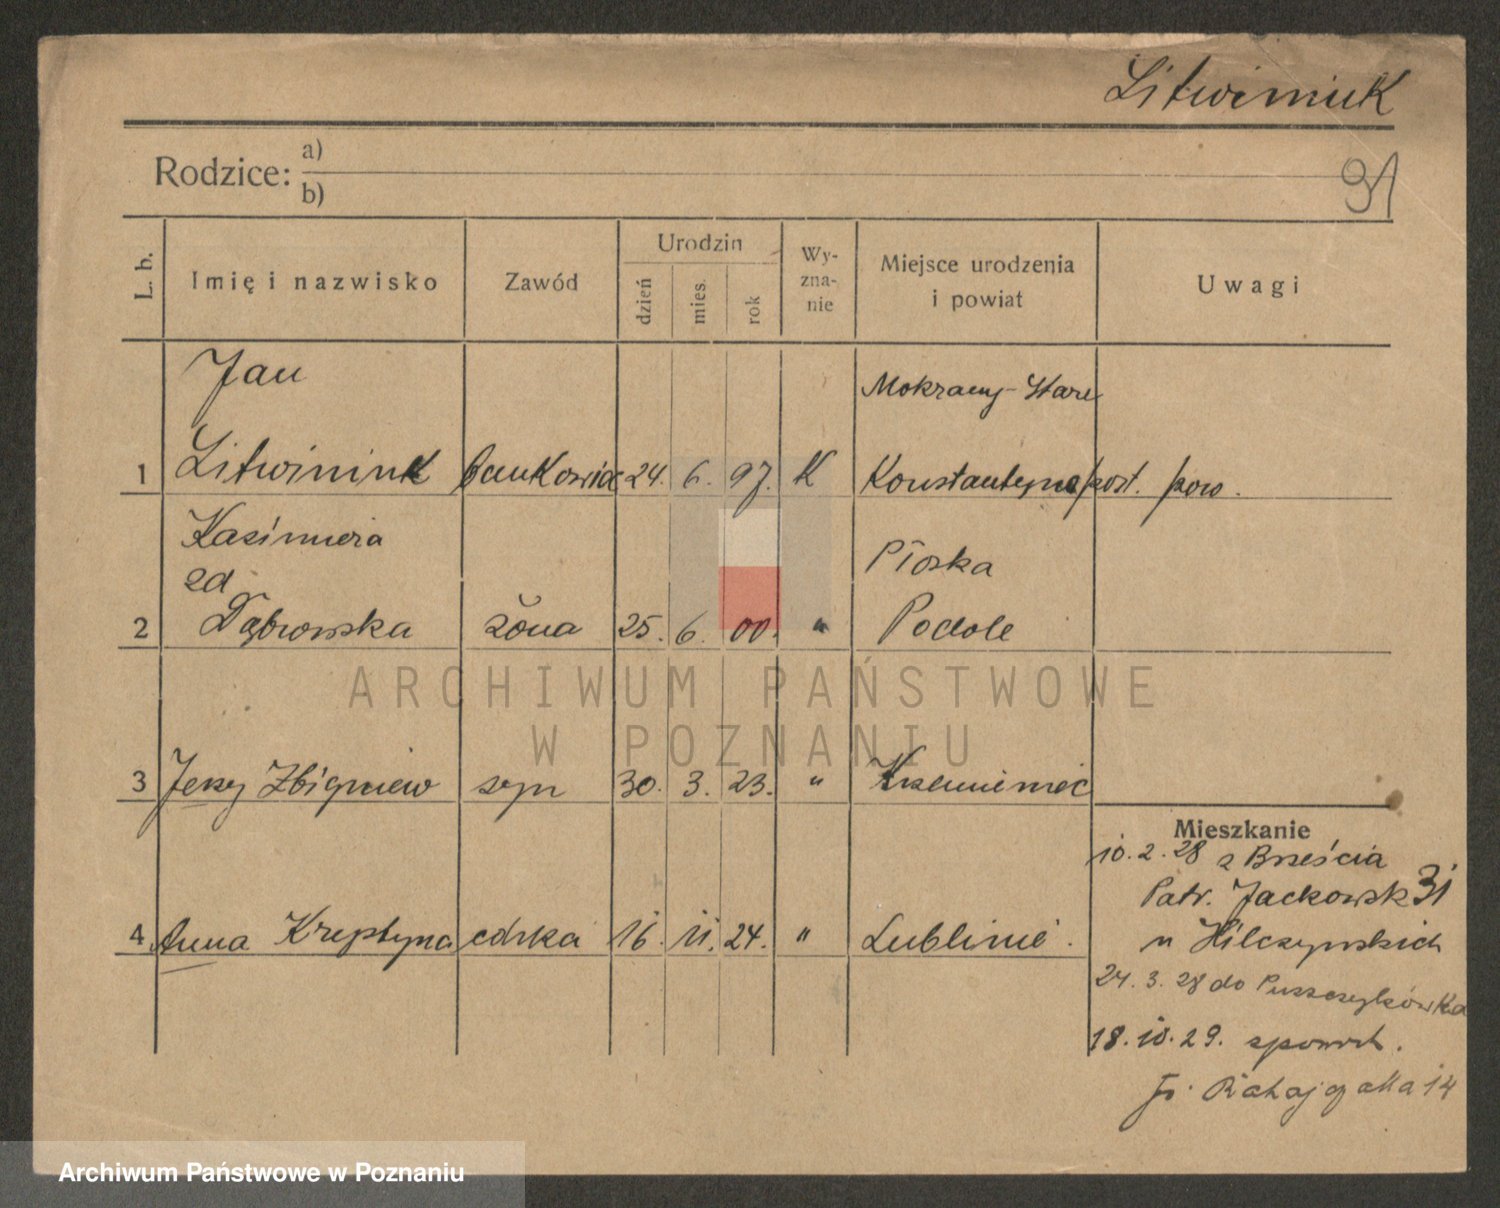 Litwiniuk
Rodzice:
a)
b)
91
L. b.
Imię i nazwisko
Zawód
Urodzin
dzień
mies.
rok
Wy-
zna-
nie
Miejsce urodzenia
i powiat
Uwagi
Jan
Mokrany-Stare
1 Litwiniuk bankowiec 24. 6. 97. K Konstantynopost. pow.
Kazimiera
zd
Płoska
2 Dąbrowska żona 25. 6. 00. " Podole
ARCHIWUM PAŃSTWOWE
W POZNANIU
3 Jerzy Zbigniew syn 30. 3. 23. " Krzemieniec
Mieszkanie
10. 2. 28 z Brześcia
Patr. Jackowsk 31
4 Anna Krystyna córka 16. 11. 24. " Lublinie.
u Hilczyńskich
24. 3. 28 do Puszczykówka
18. 10. 29. spowrt.
14
Archiwum Państwowe w Poznaniu